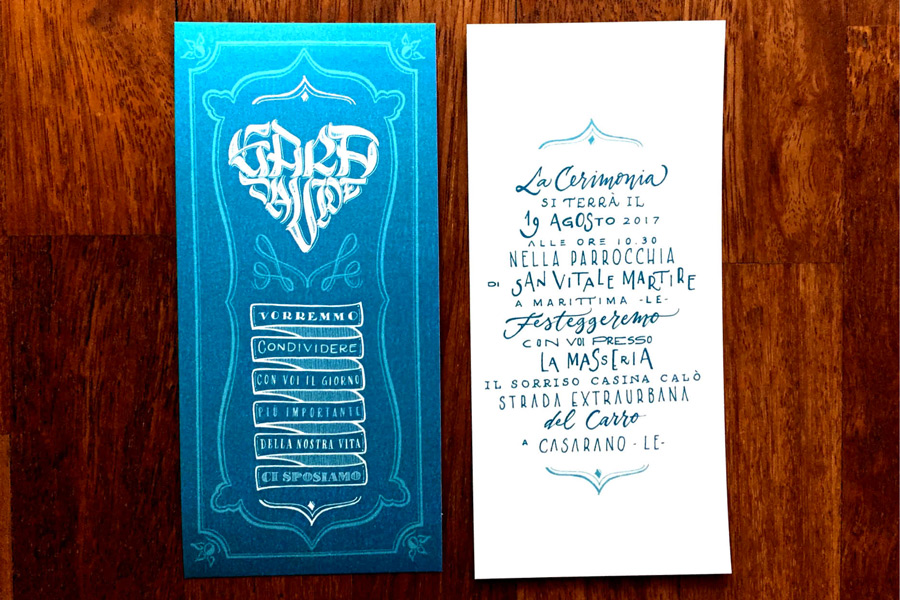 SARA
DAVIDE
VORREMMO
CONDIVIDERE
CON VOI IL GIORNO
PIÙ IMPORTANTE
DELLA NOSTRA VITA
CI SPOSIAMO
La Cerimonia
SI TERRÀ IL
19 AGOSTO 2017
ALLE ORE 10.30
NELLA PARROCCHIA
DI SAN VITALE MARTIRE
A MARITTIMA -LE-
Festeggeremo
CON VOI PRESSO
LA MASSERIA
IL SORRISO CASINA CALÒ
STRADA EXTRAURBANA
del Carro
A CASARANO -LE-